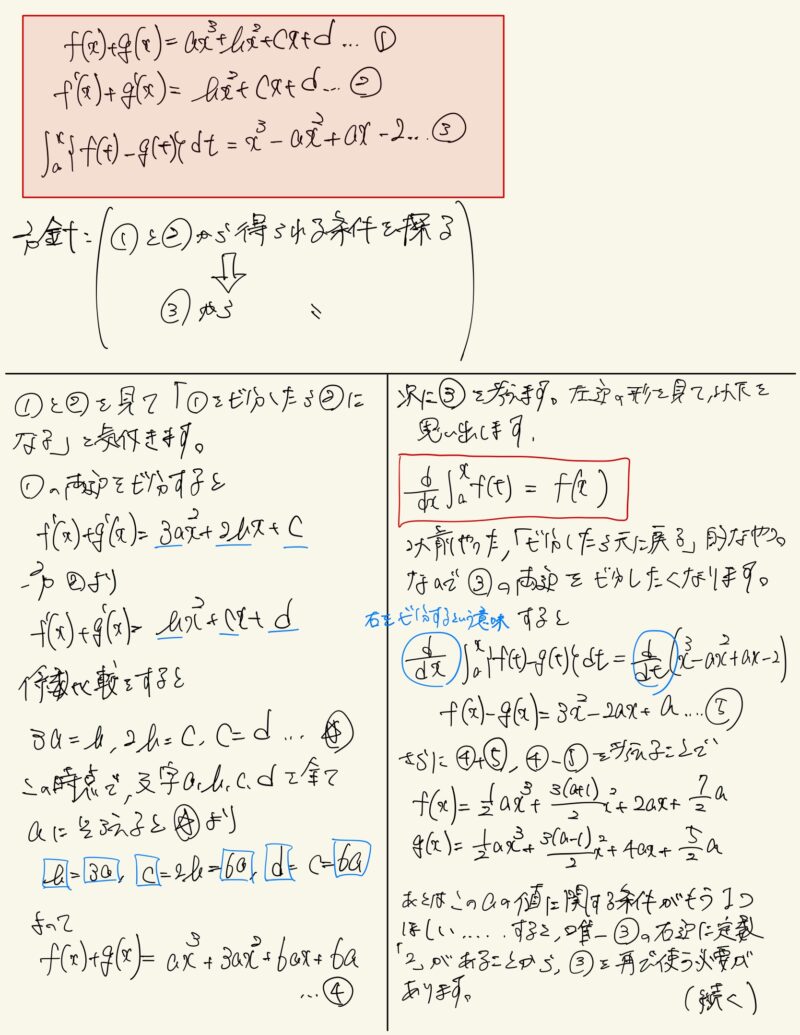 f(x)+g(x)=ax³+bx²+cx+d…①
f'(x)+g'(x)= bx²+cx+d…②
∫ₐˣ{f(t)-g(t)}dt=x³-ax²+ax-2…③
方針=(①と②から得られる条件を探る
⇓
③から 〃)
①と②を見て「①をビ分したら②に
なる」と気付きます。
①の両辺をビ分すると
f'(x)+g'(x)=3ax²+2bx+c
一方②より
f'(x)+g'(x)=bx²+cx+d
係数比較をすると
3a=b, 2b=c, c=d…☆
この時点で、文字a,b,c,dを全て
aにそろえると☆より
b=3a, c=2b=6a, d=c=6a
よって
f(x)+g(x)=ax³+3ax²+6ax+6a
…④
次に③を考えます。左辺の形を見て、以下を
思い出します.
d/dx ∫ₐˣ f(t) = f(x)
以前やった,「ビ分したら元に戻る」的なやつ。
なので③の両辺をビ分したくなります。
右をビ分するという意味 すると
d/dx ∫ₐˣ{f(t)-g(t)}dt = d/dt (x³-ax²+ax-2)
f(x)-g(x)=3x²-2ax+a…⑤
さらに④+⑤, ④-⑤を考えることで
f(x)=1/2 ax³+ 3(a+1)/2 x²+2ax+ 7/2 a
g(x)=1/2 ax³+ 3(a-1)/2 x²+4ax+ 5/2 a
あとはこのaの値に関する条件がもう1つ
ほしい……すると,唯一③の右辺に定数
「2」があることから,③を再び使う必要が
あります。
(続く)